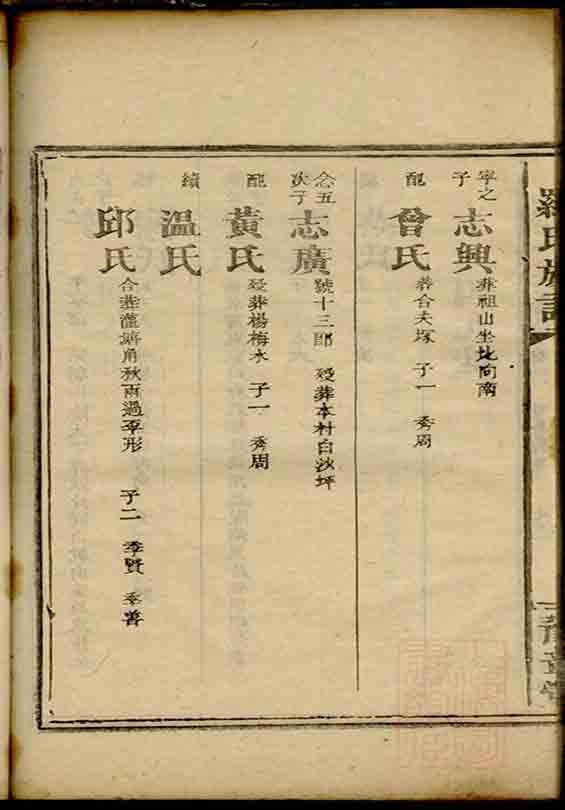 羅氏族譜
寧之子 志興 葬祖山坐北向南
配 曾氏 葬合夫塚 子一 秀周
念五次子 志廣 號十三郎 歿葬本村白沙坪
配 黃氏 歿葬楊梅水 子一 秀周
續 溫氏
邱氏 合葬蘆塘角秋雨過 形 子二 季賢 季善
豫章堂